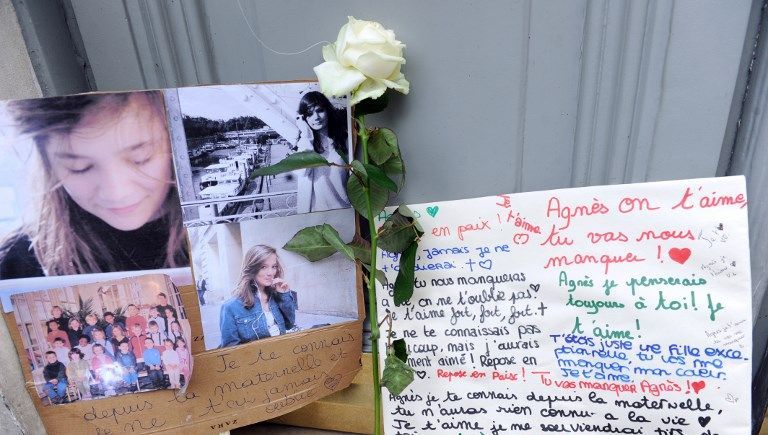 Je te connais
depuis la maternelle et
je ne t'ai jamais
oublié
ZARA
en paix !
Je t'aime
Agnès on t'aime,
tu vas nous
manquer !
Agnès jamais je ne
t'oublierai
Agnès tu nous manqueras
on ne t'oublie pas.
Je t'aime fort, fort, fort.
Je ne te connaissais pas
beaucoup, mais j'aurais
aimé ! Repose en
REPOSE EN Paix !
Agnès je penserais
toujours à toi! je
t'aime!
T'étais juste une fille exce
tu vas me
manquer mon cœur.
Je t'aime.
Tu vas manquer Agnès !
Agnès je te connais depuis la maternelle,
tu n'auras rien connu à la vie
Je t'aime je me souviendrai